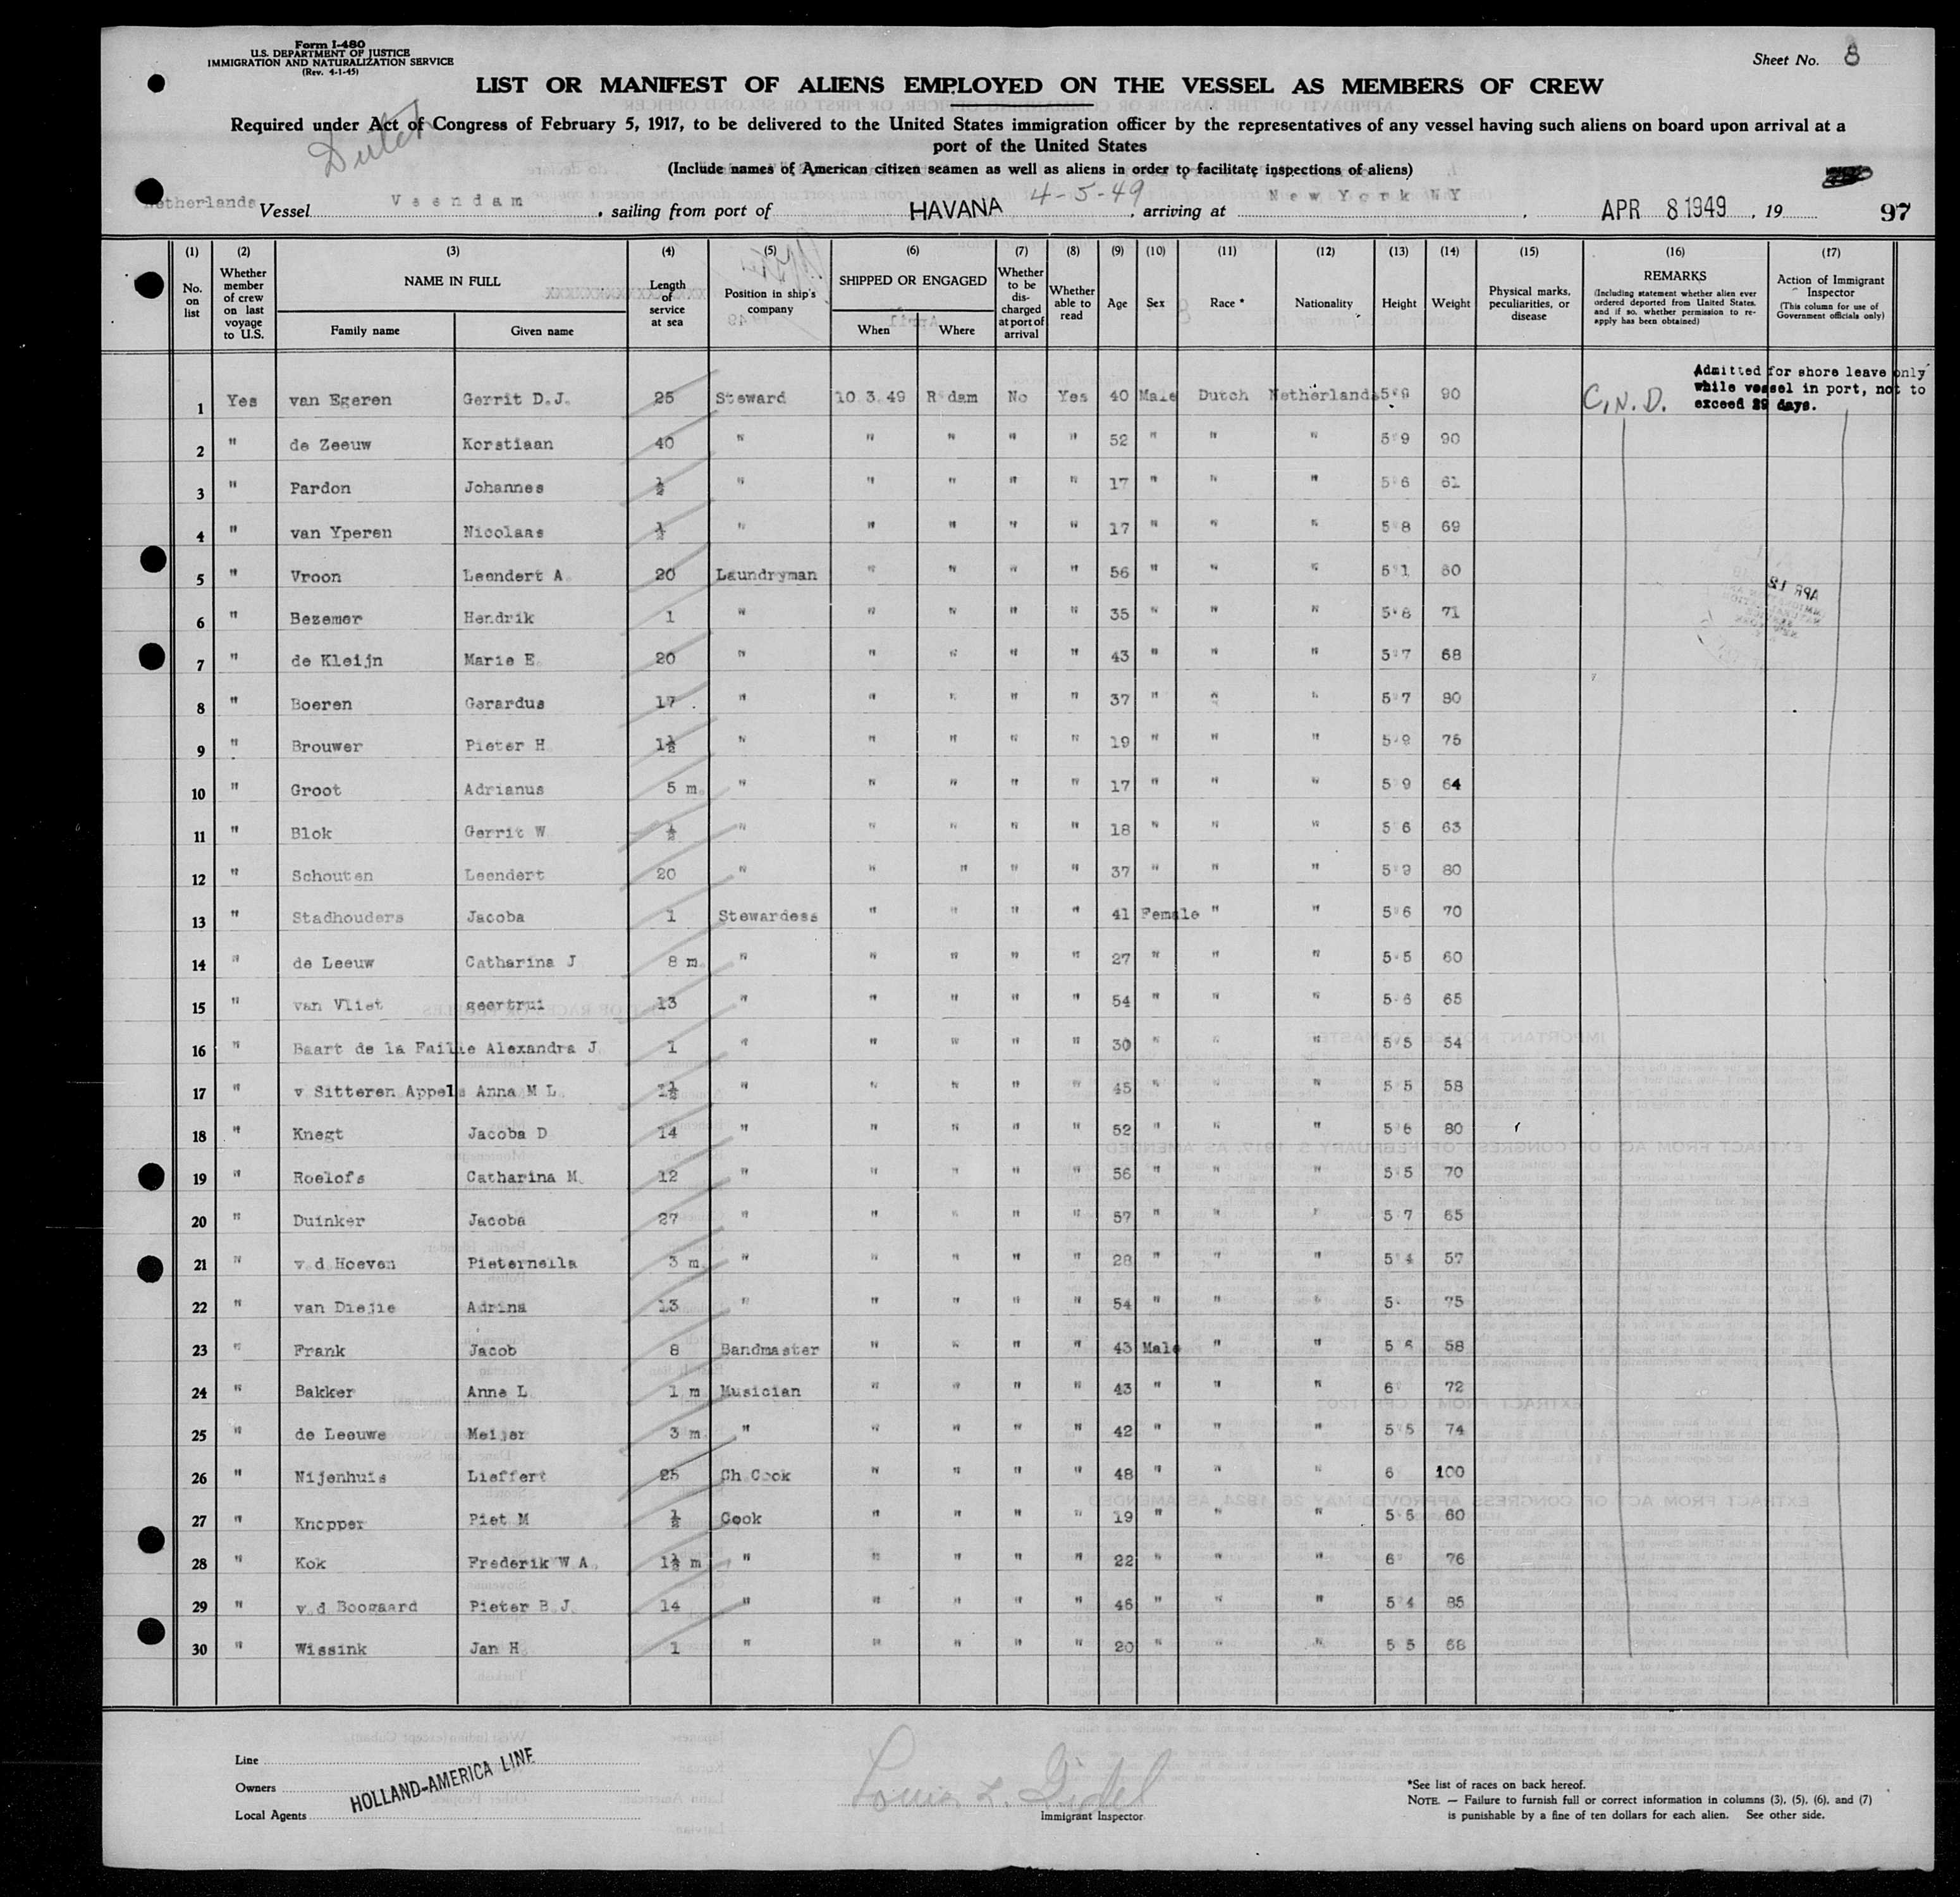 Form I-480
U.S. DEPARTMENT OF JUSTICE
IMMIGRATION AND NATURALIZATION SERVICE
(Rev. 4-1-45)
Sheet No. 8
LIST OR MANIFEST OF ALIENS EMPLOYED ON THE VESSEL AS MEMBERS OF CREW
Dutch
Required under Act of Congress of February 5, 1917, to be delivered to the United States immigration officer by the representatives of any vessel having such aliens on board upon arrival at a
port of the United States
(Include names of American citizen seamen as well as aliens in order to facilitate inspections of aliens)
Netherlands Vessel Veendam, sailing from port of HAVANA 4-5-49, arriving at New York NY, APR 8 1949, 19 97
(1) (2) (3) (4) (5) (6) (7) (8) (9) (10) (11) (12) (13) (14) (15) (16) (17)
No. on list
Whether member of crew on last voyage to U.S.
NAME IN FULL
Family name
Given name
Length of service at sea
Position in ship's company
SHIPPED OR ENGAGED
When
Where
Whether to be discharged at port of arrival
Whether able to read
Age
Sex
Race *
Nationality
Height
Weight
Physical marks, peculiarities, or disease
REMARKS
(Including statement whether alien ever ordered deported from United States, and if so, whether permission to reapply has been obtained)
Action of Immigrant Inspector
(This column for use of Government officials only)
1 Yes van Egeren Gerrit D.J. 25 Steward 10 3 49 R dam No Yes 40 Male Dutch Netherlands 5 9 90 C.N.D.
Admitted for shore leave only
while vessel in port, not to
exceed 29 days.
2 " de Zeeuw Korstiaan 40 " " " " " 52 " " " 5 9 90
3 " Pardon Johannes ½ " " " " " 17 " " " 5 6 61
4 " van Yperen Nicolaas ½ " " " " " 17 " " " 5 8 69
5 " Vroon Leendert A. 20 Laundryman " " " " 56 " " " 5 1 60
6 " Bezemer Hendrik 1 " " " " " 35 " " " 5 8 71
7 " de Kleijn Marie E. 20 " " " " " 43 " " " 5 7 68
8 " Boeren Gerardus 17 " " " " " 37 " " " 5 7 80
9 " Brouwer Pieter H 1½ " " " " " 19 " " " 5 9 75
10 " Groot Adrianus 5 m. " " " " " 17 " " " 5 9 64
11 " Blok Gerrit W ½ " " " " " 18 " " " 5 6 63
12 " Schouten Leendert 20 " " " " " 37 " " " 5 9 80
13 " Stadhouders Jacoba 1 Stewardess " " " " 41 Female " " 5 6 70
14 " de Leeuw Catharina J 8 m. " " " " " 27 " " " 5 5 60
15 " van Vliet geertrui 13 " " " " " 54 " " " 5 6 65
16 " Baart de la Faille Alexandra J. 1 " " " " " 30 " " " 5 5 54
17 " v Sitteren Appels Anna M L. " " " " " 45 " " " 5 5 58
18 " Knegt Jacoba D 14 " " " " " 52 " " " 5 6 80
19 " Roelofs Catharina M. 12 " " " " " 56 " " " 5 5 70
20 " Duinker Jacoba 27 " " " " " 57 " " " 5 7 65
21 " v.d Hoeven Pieternella 3 m. " " " " " 28 " " " 5 4 57
22 " van Diejie Adrina 13 " " " " " 54 " " " 5 75
23 " Frank Jacob 8 Bandmaster " " " " 43 Male " " 5 6 58
24 " Bakker Anne L. 1 m Musician " " " " 43 " " " 6 72
25 " de Leeuwe Meijer 3 m. " " " " " 42 " " " 5 5 74
26 " Nijenhuis Lieffert 25 Ch Cook " " " " 48 " " " 6 100
27 " Knopper Piet M ½ Cook " " " " 19 " " " 5 6 60
28 " Kok Frederik W A. 1½ m " " " " " 22 " " " 6 76
29 " v.d Boogaard Pieter B.J. 14 " " " " " 46 " " " 5 4 85
30 " Wissink Jan H. 1 " " " " " 20 " " " 5 5 68
Line
Owners
Local Agents
HOLLAND-AMERICA LINE
Louis L. Gidel
Immigrant Inspector
*See list of races on back hereof.
NOTE. — Failure to furnish full or correct information in columns (3), (5), (6), and (7)
is punishable by a fine of ten dollars for each alien. See other side.